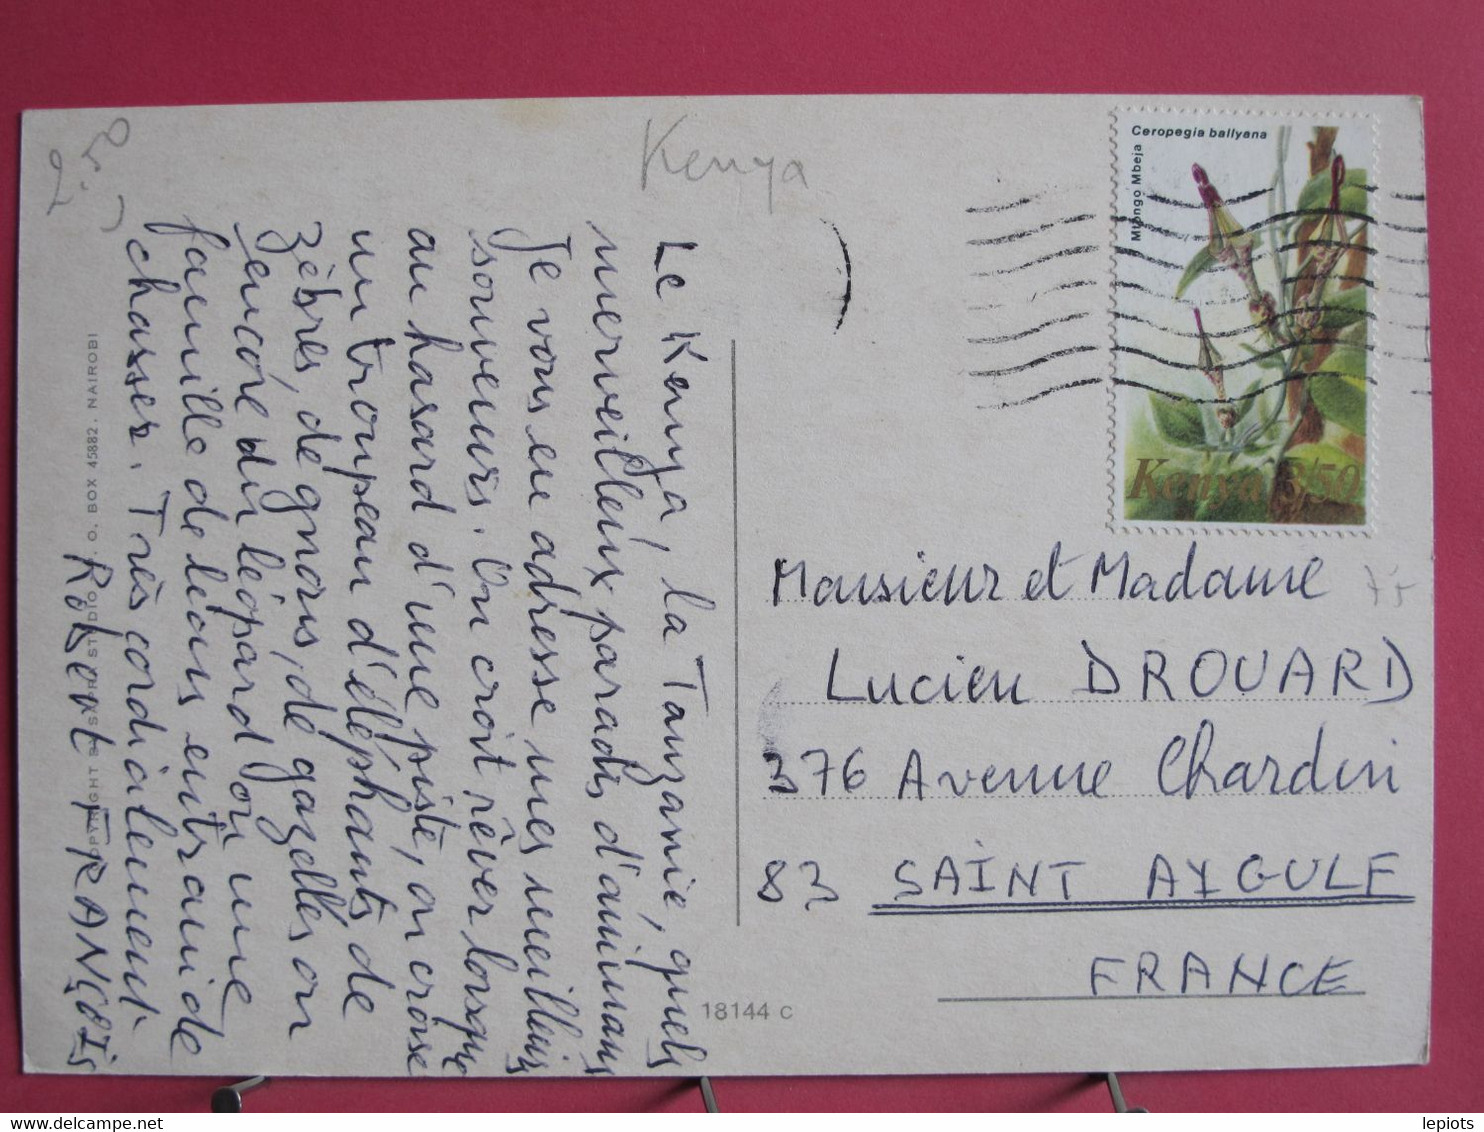 Kenya
Le Kenya, la Tanzanie, quels
merveilleux paradis d'animaux
Je vous en adresse mes meilleurs
souvenirs. On croit rêver lorsque
au hasard d'une piste, on croise
un troupeau d'éléphants, de
zèbres, de gnous, de gazelles, ou
encore du léopard ou une
famille de lions entrain de
chasser. Très cordialement
Robert FRANÇOIS
O. BOX 45882, NAIROBI
18144 C
Ceropegia ballyana
Mtongo Mbeja
Kenya 3/50
Monsieur et Madame
Lucien DROUARD
376 Avenue Chardin
83 SAINT AYGULF
FRANCE
lepiots
www.delcampe.net